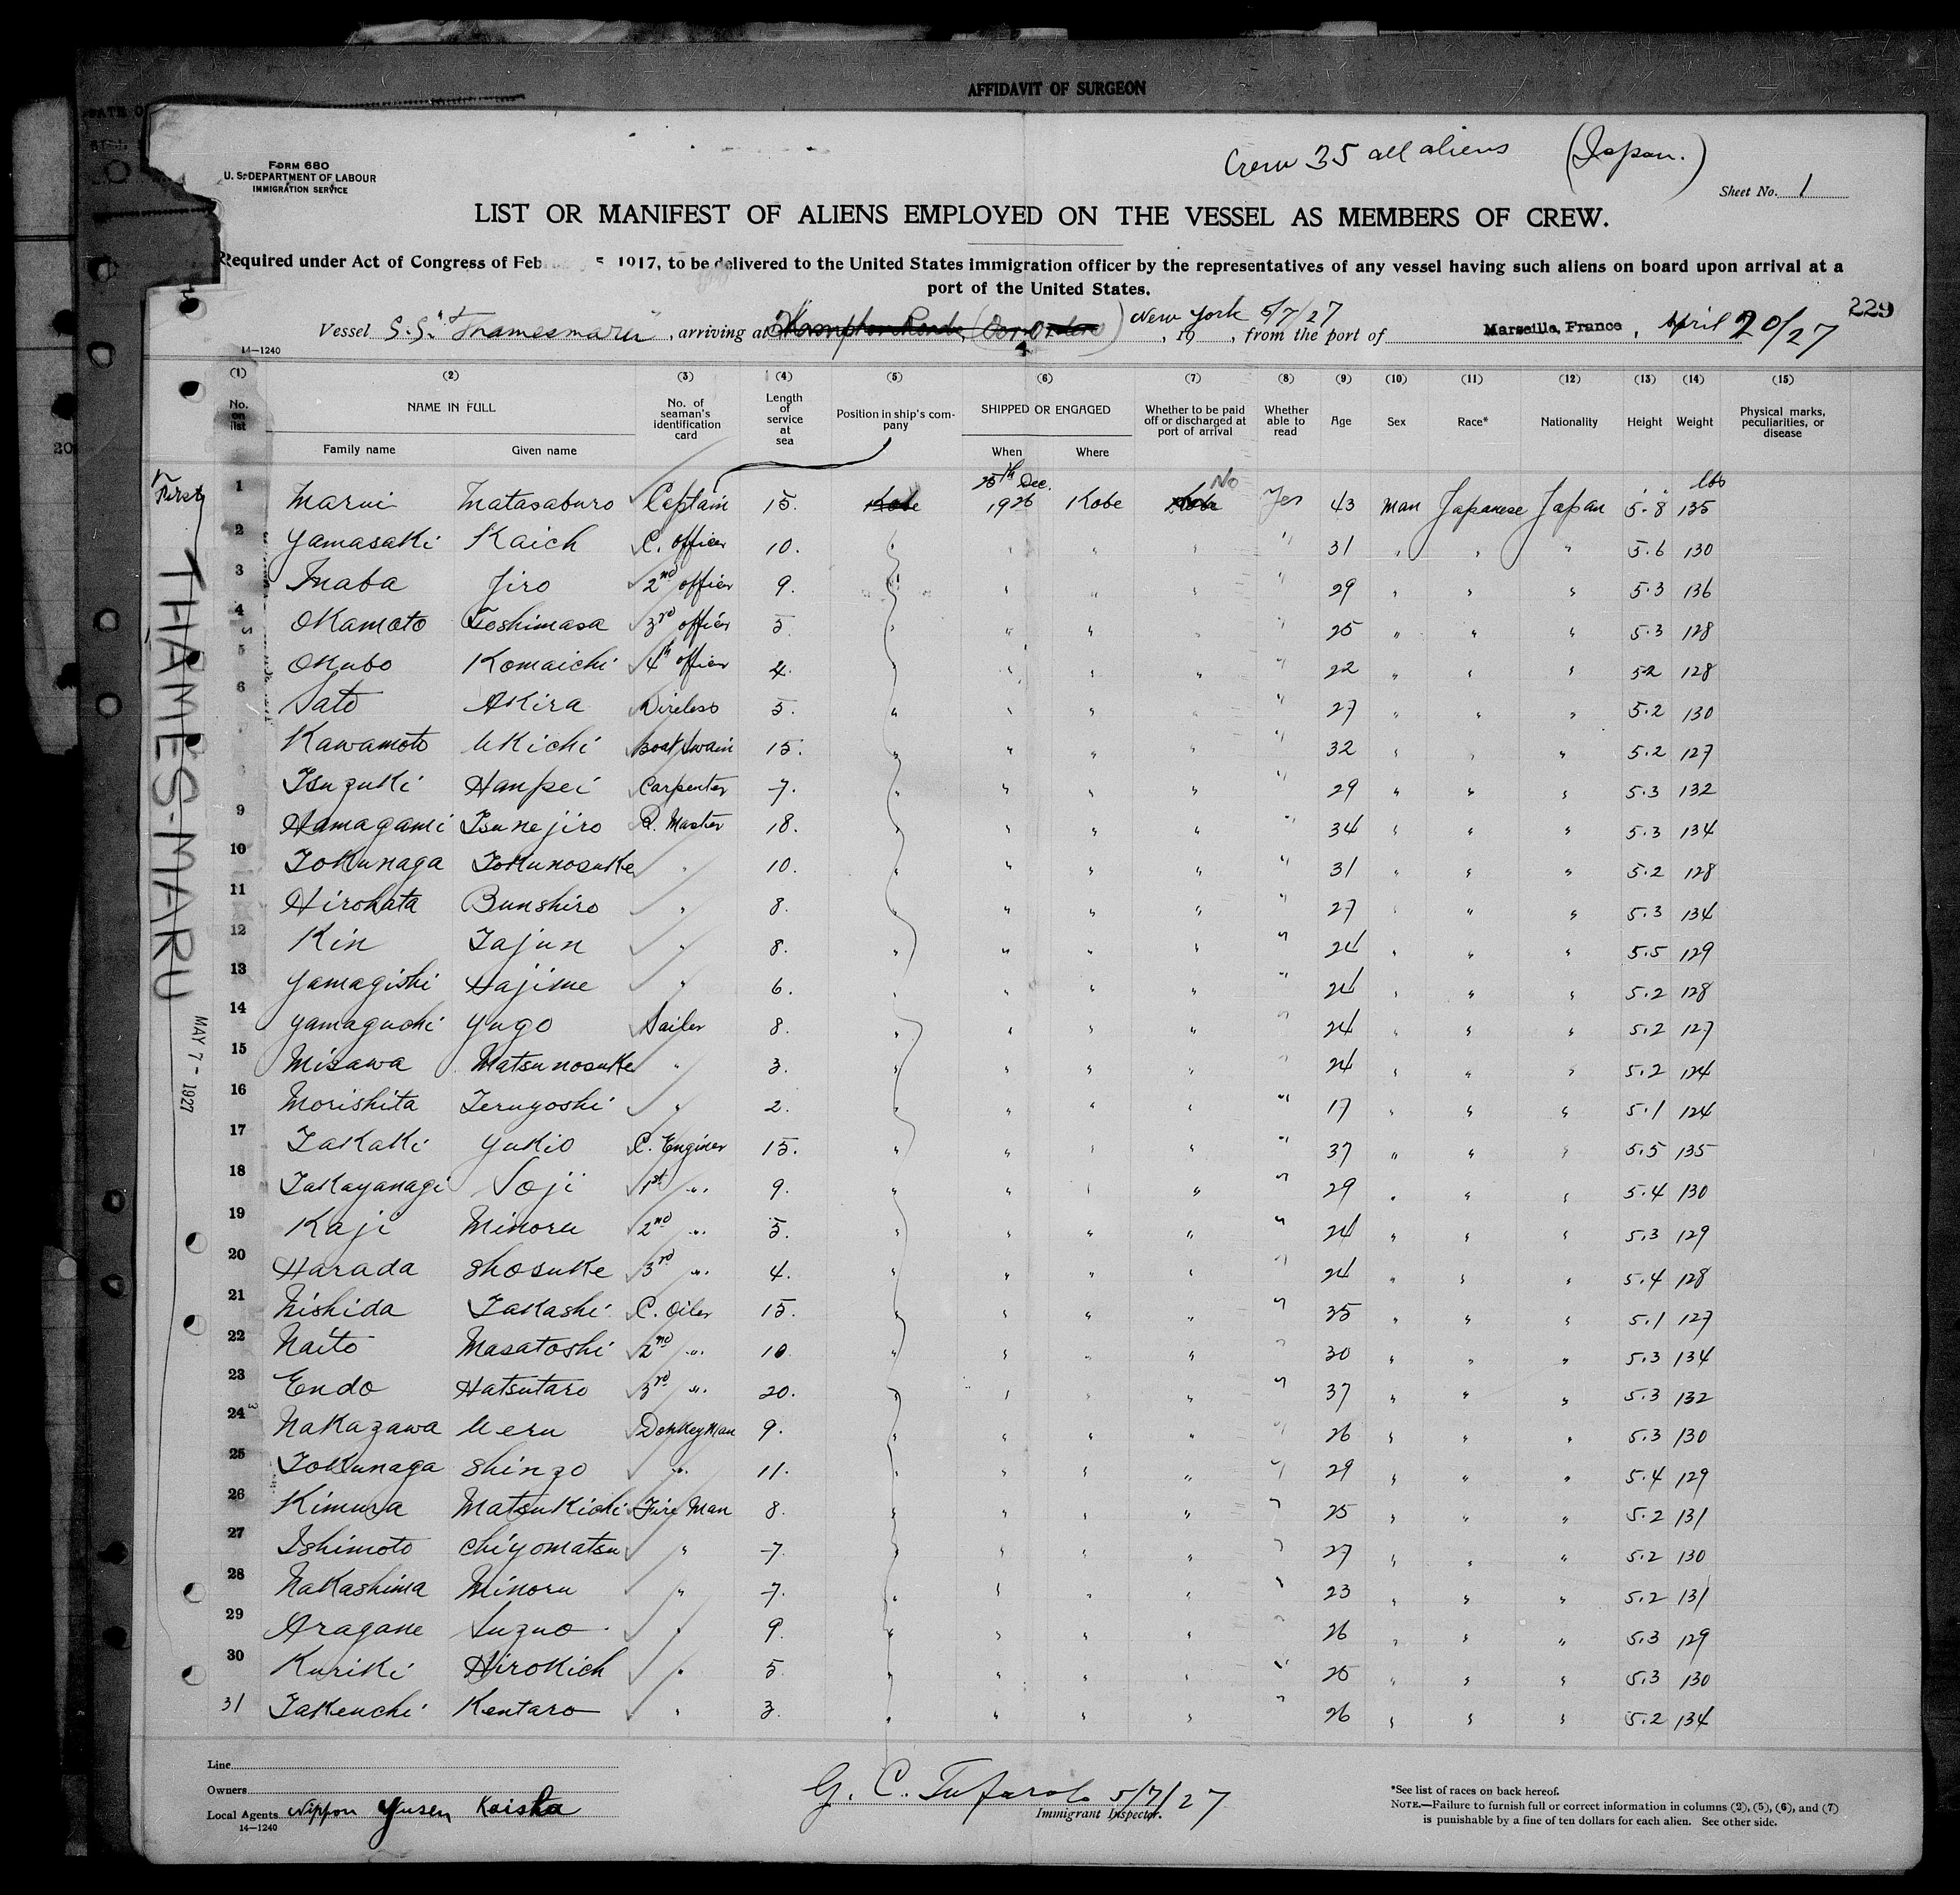 AFFIDAVIT OF SURGEON
Crew 35 all aliens (Japan.)
FORM 680
U. S. DEPARTMENT OF LABOUR
IMMIGRATION SERVICE
Sheet No. 1
LIST OR MANIFEST OF ALIENS EMPLOYED ON THE VESSEL AS MEMBERS OF CREW.
Required under Act of Congress of Feb 5 1917, to be delivered to the United States immigration officer by the representatives of any vessel having such aliens on board upon arrival at a
port of the United States.
229
Vessel S.S. "Thamesmaru", arriving at New York 5/7/27, 19 , from the port of Marseille, France, April 20/27
14—1240
(1) (2) (3) (4) (5) (6) (7) (8) (9) (10) (11) (12) (13) (14) (15)
No. on list NAME IN FULL Family name Given name No. of seaman's identification card Length of service at sea Position in ship's company SHIPPED OR ENGAGED When Where Whether to be paid off or discharged at port of arrival Whether able to read Age Sex Race* Nationality Height Weight Physical marks, peculiarities, or disease
First
THAMES-MARU
MAY 7 - 1927
1 Marui Matasaburo Captain 15. Kobe 25th Dec. 1926 Kobe Kobe No Yes 43 Man Japanese Japan 5.8 135 lbs
2 Yamasaki Kaich C. officer 10. " " " " " 31 " " " 5.6 130
3 Inaba Jiro 2nd officer 9. " " " " " 29 " " " 5.3 136
4 Okamoto Toshimasa 3rd officer 5. " " " " " 25 " " " 5.3 128
5 Okubo Komaichi 4th officer 4. " " " " " 22 " " " 5.2 128
6 Sato Akira Wireless 5. " " " " " 27 " " " 5.2 130
Kawamoto Ukichi Boat Swain 15. " " " " " 32 " " " 5.2 127
Tsuzuki Hanpei Carpenter 7. " " " " " 29 " " " 5.3 132
9 Hamagami Tsunejiro Q. Master 18. " " " " " 34 " " " 5.3 134
10 Tokunaga Tokunosuke " 10. " " " " " 31 " " " 5.2 128
11 Hirohata Bunshiro " 8. " " " " " 27 " " " 5.3 134
12 Kin Tajun " 8. " " " " " 24 " " " 5.5 129
13 Yamagishi Hajime " 6. " " " " " 24 " " " 5.2 128
14 Yamaguchi Yugo Sailer 8. " " " " " 24 " " " 5.2 127
15 Misawa Matsunosuke " 3. " " " " " 24 " " " 5.2 124
16 Morishita Teruyoshi " 2. " " " " " 17 " " " 5.1 124
17 Takaki Yukio C. Enginer 15. " " " " " 37 " " " 5.5 135
18 Takayanagi Soji 1st " 9. " " " " " 29 " " " 5.4 130
19 Kaji Minoru 2nd " 5. " " " " " 24 " " " 5.3 129
20 Harada Shosuke 3rd " 4. " " " " " 24 " " " 5.4 128
21 Nishida Takashi C. Oiler 15. " " " " " 35 " " " 5.1 127
22 Naito Masatoshi 2nd " 10 " " " " " 30 " " " 5.3 134
23 Endo Hatsutaro 3rd " 20. " " " " " 37 " " " 5.3 132
24 Nakazawa Ueru DonkeyMan 9. " " " " " 26 " " " 5.3 130
25 Tokunaga Shinzo " 11. " " " " " 29 " " " 5.4 129
26 Kimura Matsukichi Fire Man 8. " " " " " 25 " " " 5.2 131
27 Ishimoto Chiyomatsu " 7. " " " " " 27 " " " 5.2 130
28 Nakashima Minoru " 7. " " " " " 23 " " " 5.2 131
29 Aragane Suzuo " 9. " " " " " 26 " " " 5.3 129
30 Kuriki Hirokich " 5 " " " " " 25 " " " 5.3 130
31 Takeuchi Kentaro " 3. " " " " " 26 " " " 5.2 134
Line
Owners
Local Agents Nippon Yusen Kaisha
14—1240
G. C. 5/7/27
Immigrant Inspector.
*See list of races on back hereof.
NOTE.—Failure to furnish full or correct information in columns (2), (5), (6), and (7)
is punishable by a fine of ten dollars for each alien. See other side.